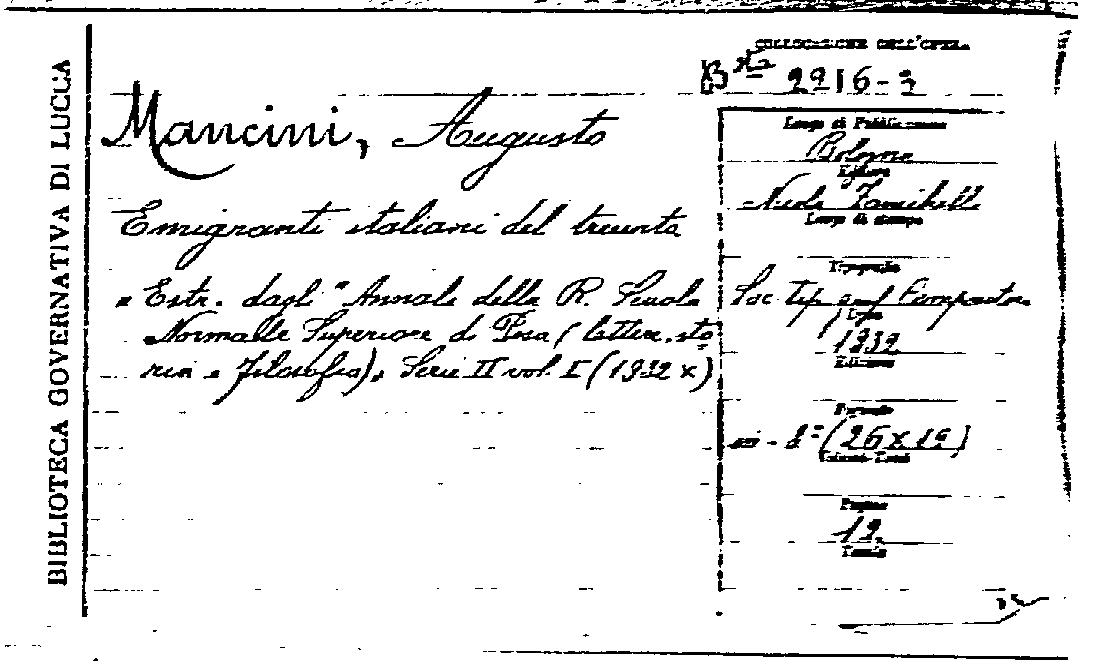 BIBLIOTECA GOVERNATIVA DI LUCCA
COLLOCAZIONE DELL'OPERA
2216-3
Mancini, Augusto
Emigranti italiani del trecento
Estr. dagli "Annali della R. Scuola
Normale Superiore di Pisa (lettere, sto
ria e filosofia), Serie II vol. I (1932 X)
Luogo di Pubblicazione
Bologna
Editore
Nicola Zanichelli
Luogo di stampa
Tipografia
Soc. tip. Compositori
1932
Edizione
Formato
in-8º (26x19)
Pagine
12
Tavole